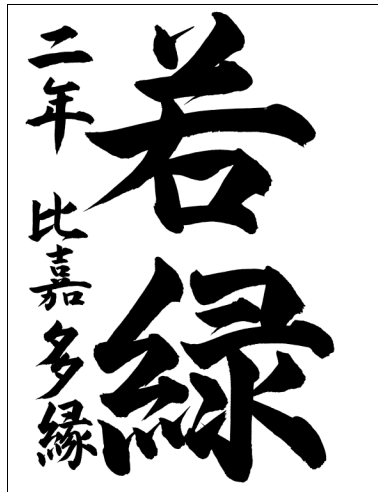 若緑
二年 比嘉多縁